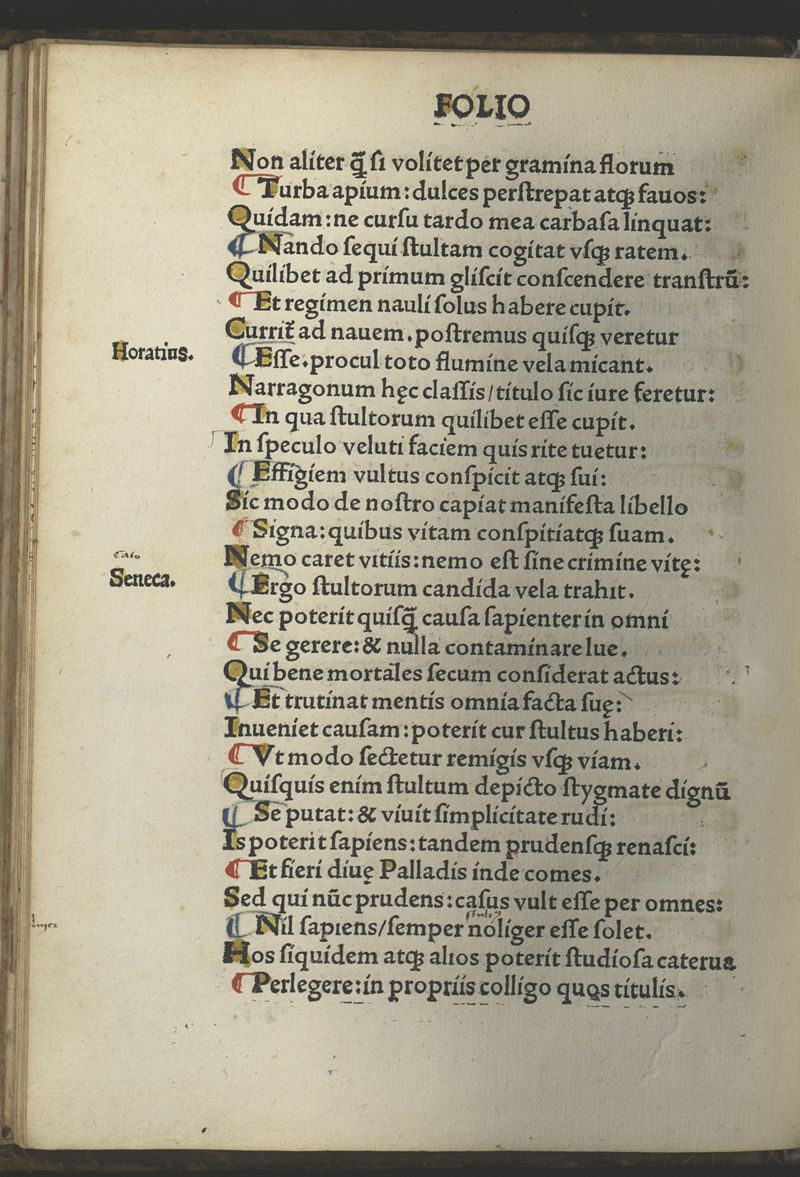 FOLIO
Non aliter q̃ ſi volitet per gramina florum
¶ Turba apium: dulces perſtrepat atqꝫ fauos:
Quidam: ne curſu tardo mea carbaſa linquat:
¶ Nando ſequi ſtultam cogitat vſqꝫ ratem.
Quilibet ad primum gliſcit conſcendere tranſtrũ:
¶ Et regimen nauli ſolus habere cupit.
Currit̃ ad nauem. poſtremus quiſqꝫ veretur
Horatius.
¶ Eſſe. procul toto flumine vela micant.
Narragonum hęc claſſis/titulo ſic iure feretur:
¶ In qua ſtultorum quilibet eſſe cupit.
In ſpeculo veluti faciem quis rite tuetur:
¶ Effigiem vultus conſpicit atqꝫ ſui:
Sic modo de noſtro capiat manifeſta libello
¶ Signa: quibus vitam conſpitiatqꝫ ſuam.
Nemo caret vitiis: nemo eſt ſine crimine vitę:
Cato
Seneca.
¶ Ergo ſtultorum candida vela trahit.
Nec poterit quiſq̃ cauſa ſapienter in omni
¶ Se gerere: & nulla contaminare lue.
Qui bene mortales ſecum conſiderat actus:
¶ Et trutinat mentis omnia facta ſuę:
Inueniet cauſam: poterit cur ſtultus haberi:
¶ Vt modo ſectetur remigis vſqꝫ viam.
Quiſquis enim ſtultum depicto ſtygmate dignũ
¶ Se putat: & viuit ſimplicitate rudi:
Is poterit ſapiens: tandem prudenſqꝫ renaſci:
¶ Et fieri diuę Palladis inde comes.
Sed qui nũc prudens: caſus vult eſſe per omnes:
¶ Nil ſapiens/ſemper noliger eſſe ſolet.
Hos ſiquidem atqꝫ alios poterit ſtudioſa caterua
¶ Perlegere: in propriis colligo quos titulis.